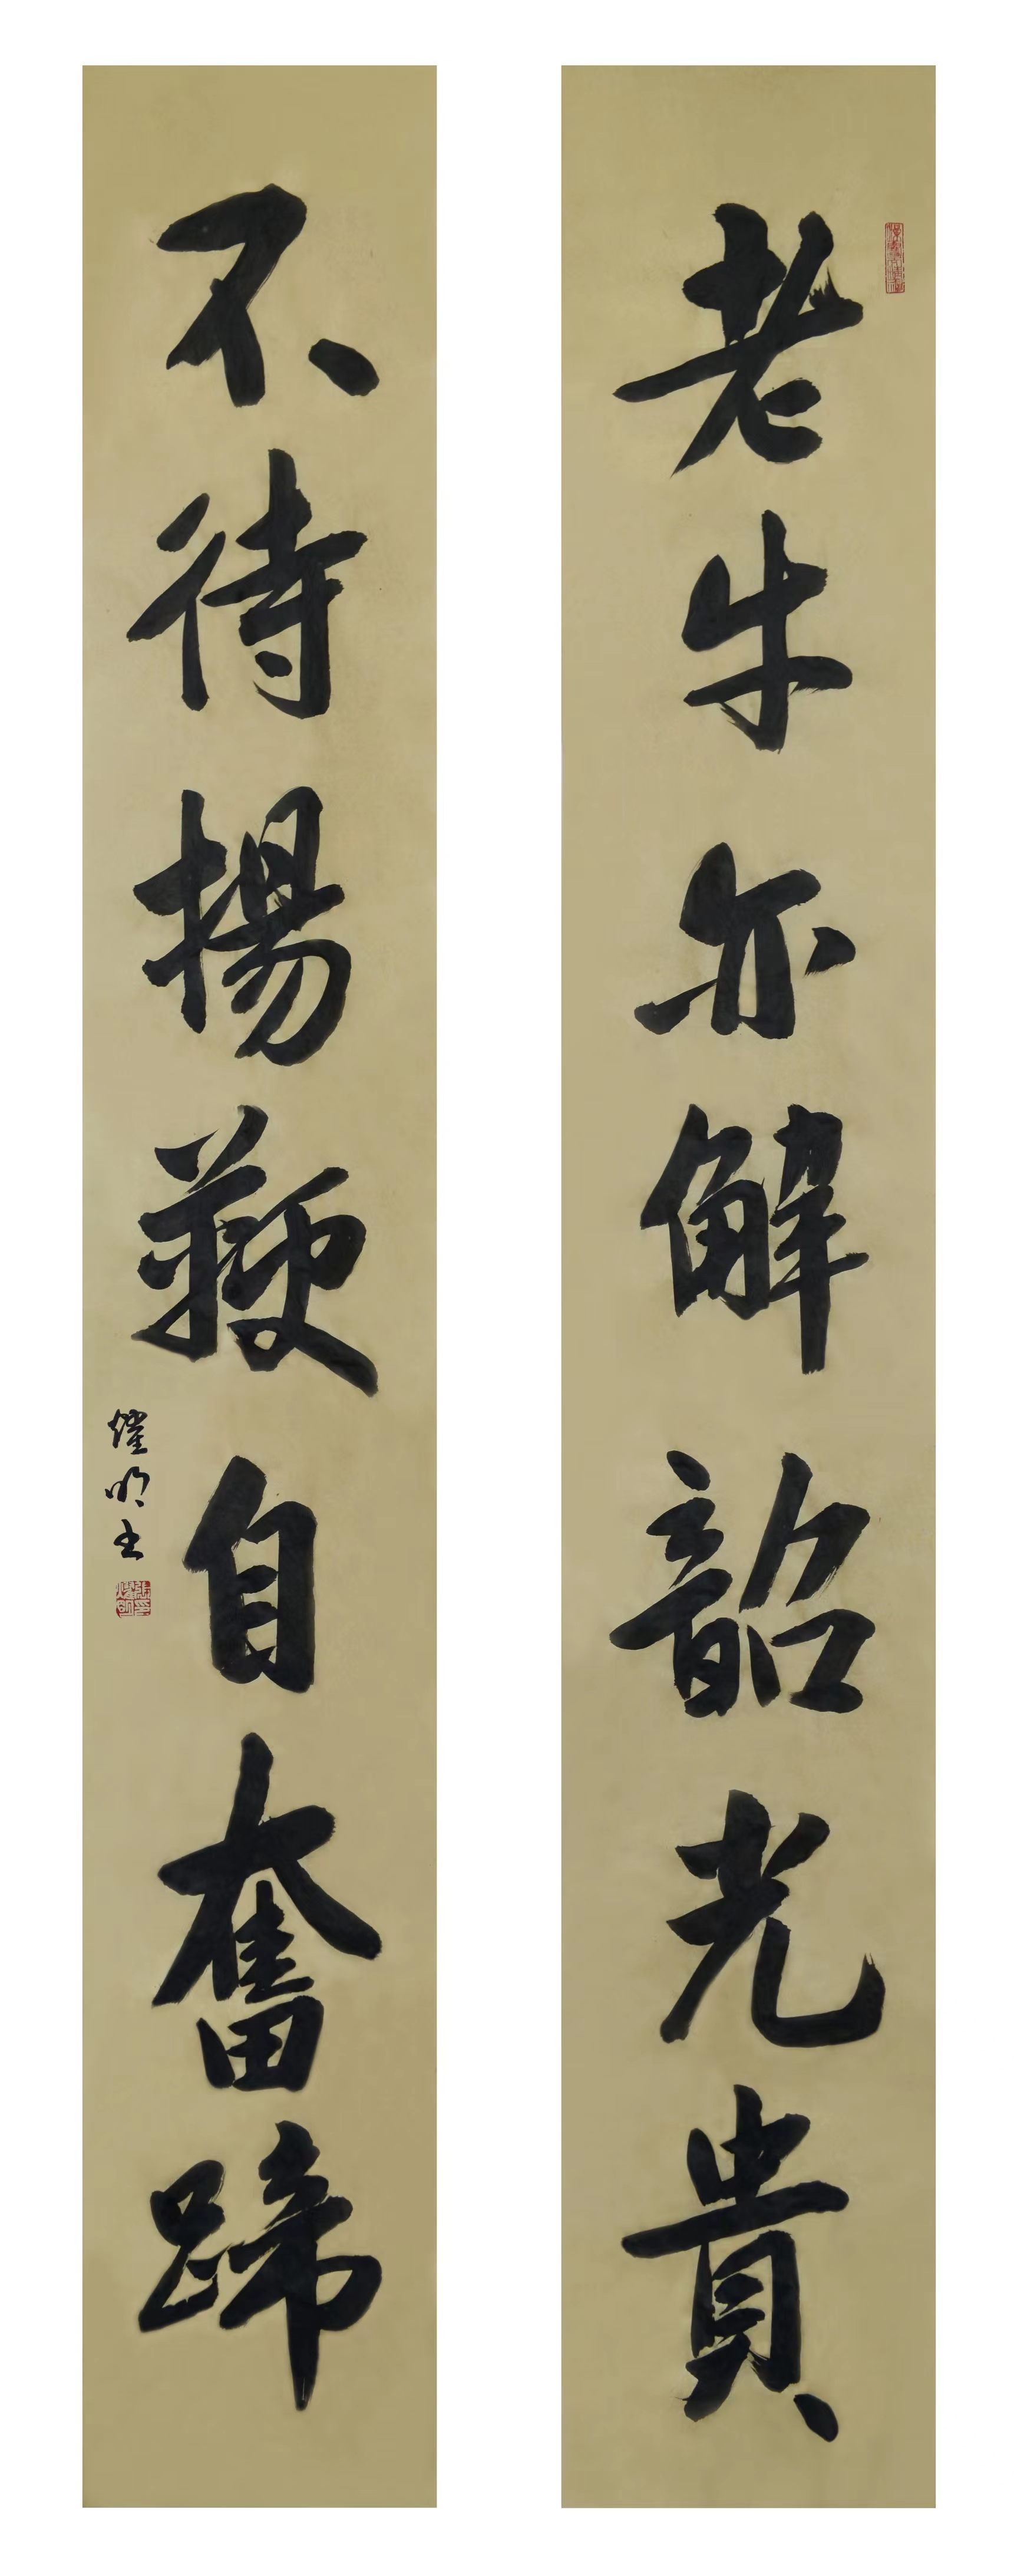 老牛亦解韶光貴
不待揚鞭自奮蹄
耀明书